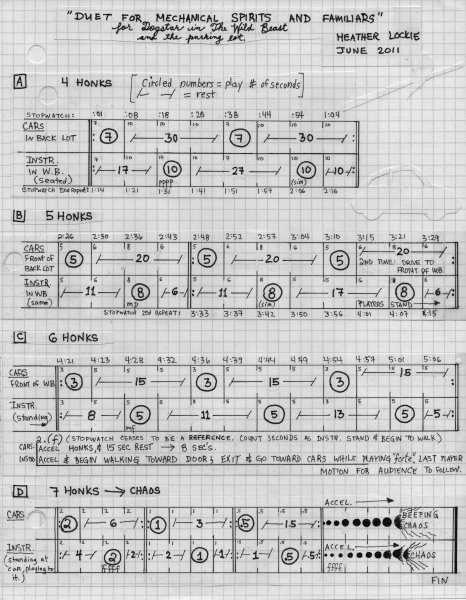 "DUET FOR MECHANICAL SPIRITS AND FAMILIARS"
for Dogstar in The Wild Beast
and the parking lot.
HEATHER LOCKIE
JUNE 2011
A 4 HONKS
[Circled numbers = play # of seconds]
/— —/ = rest
STOPWATCH: :01 :08 :18 :28 :38 :44 :54 1:04
CARS
IN BACK LOT
7 30 7 30
INSTR.
IN W.B.
(Seated)
17 10 27 10 10
pppp (sim)
STOPWATCH 2nd Repeat: 1:14 1:21 1:31 1:41 1:51 1:57 2:06 2:16
B 5 HONKS
2:26 2:30 2:36 2:43 2:48 2:52 2:57 3:04 3:10 3:15 3:21 3:29
CARS
Front of
BACK LOT
5 20 5 20 5 20
2ND TIME: DRIVE TO
FRONT OF W.B.
INSTR.
IN WB
(same)
11 8 6 11 8 17 8 6
(sim) PLAYERS STAND
STOPWATCH 2nd REPEAT: 3:33 3:37 3:42 3:50 3:56 4:01 4:07 4:15
C 6 HONKS
4:21 4:23 4:28 4:32 4:36 4:39 4:44 4:49 4:54 4:57 5:01 5:06
CARS
FRONT OF W.B.
3 15 3 15 3 15
INSTR.
(standing)
8 5 11 5 13 5 5
mf
2.(f) (STOPWATCH CEASES TO BE A REFERENCE. COUNT SECONDS AS INSTR. STAND & BEGIN TO WALK)
CARS: ACCEL HONKS, & 15 SEC REST → 8 SEC'S.
INSTR: ACCEL & BEGIN WALKING TOWARD DOOR; EXIT & GO TOWARD CARS WHILE PLAYING "forte" LAST PLAYER
MOTION FOR AUDIENCE TO FOLLOW.
D 7 HONKS → CHAOS
CARS
2 6 1 3 .5 1.5
ACCEL.
BEEPING
CHAOS
INSTR.
(standing at
car, playing to
H.)
4 2 2 2 1 1 1 .5 .5
ACCEL.
CHAOS
ffff
ffff
FIN